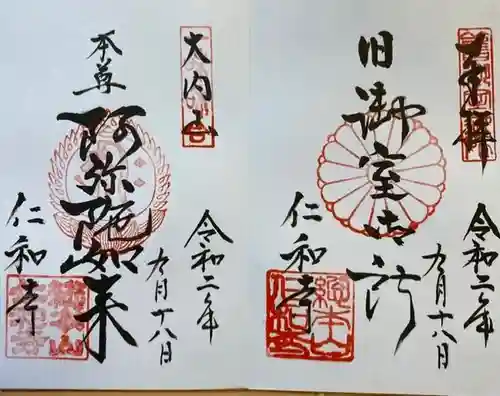 奉拝
令和二年
九月十八日
旧御室御所
仁和寺
総本山
仁和寺
大内山
令和二年
九月十八日
本尊
阿弥陀如来
仁和寺
総本山